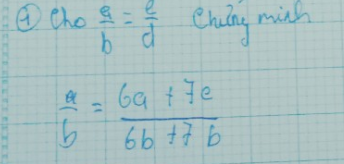 ① Cho a/b = c/d Chứng minh
a/b = (6a + 7c)/(6b + 7b)